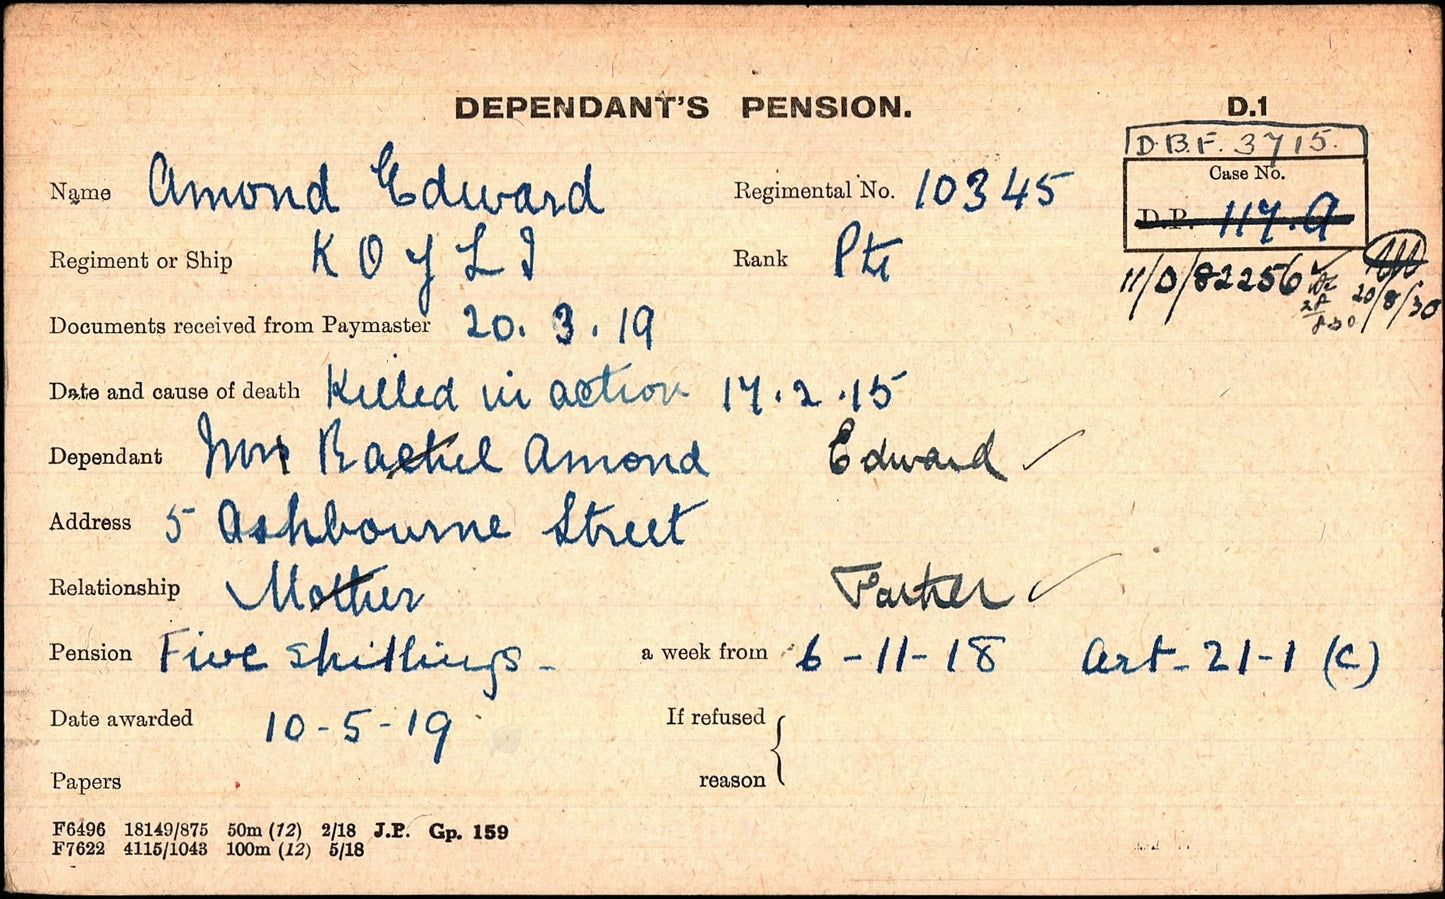 DEPENDANT'S PENSION. D.1
D.B.F. 3715.
Case No.
D.P. 117.A
11/D/82256
20/8/30
Name Amond Edward Regimental No. 10345
Regiment or Ship K O Y L I Rank Pte
Documents received from Paymaster 20. 3. 19
Date and cause of death Killed in action 17.2.15
Dependant Mrs Rachel Amond Edward ✓
Address 5 Ashbourne Street
Relationship Mother Father ✓
Pension Five shillings - a week from 6-11-18 Art-21-1 (C)
Date awarded 10-5-19 If refused
Papers reason
F6496 18149/875 50m (12) 2/18 J.P. Gp. 159
F7622 4115/1043 100m (12) 5/18